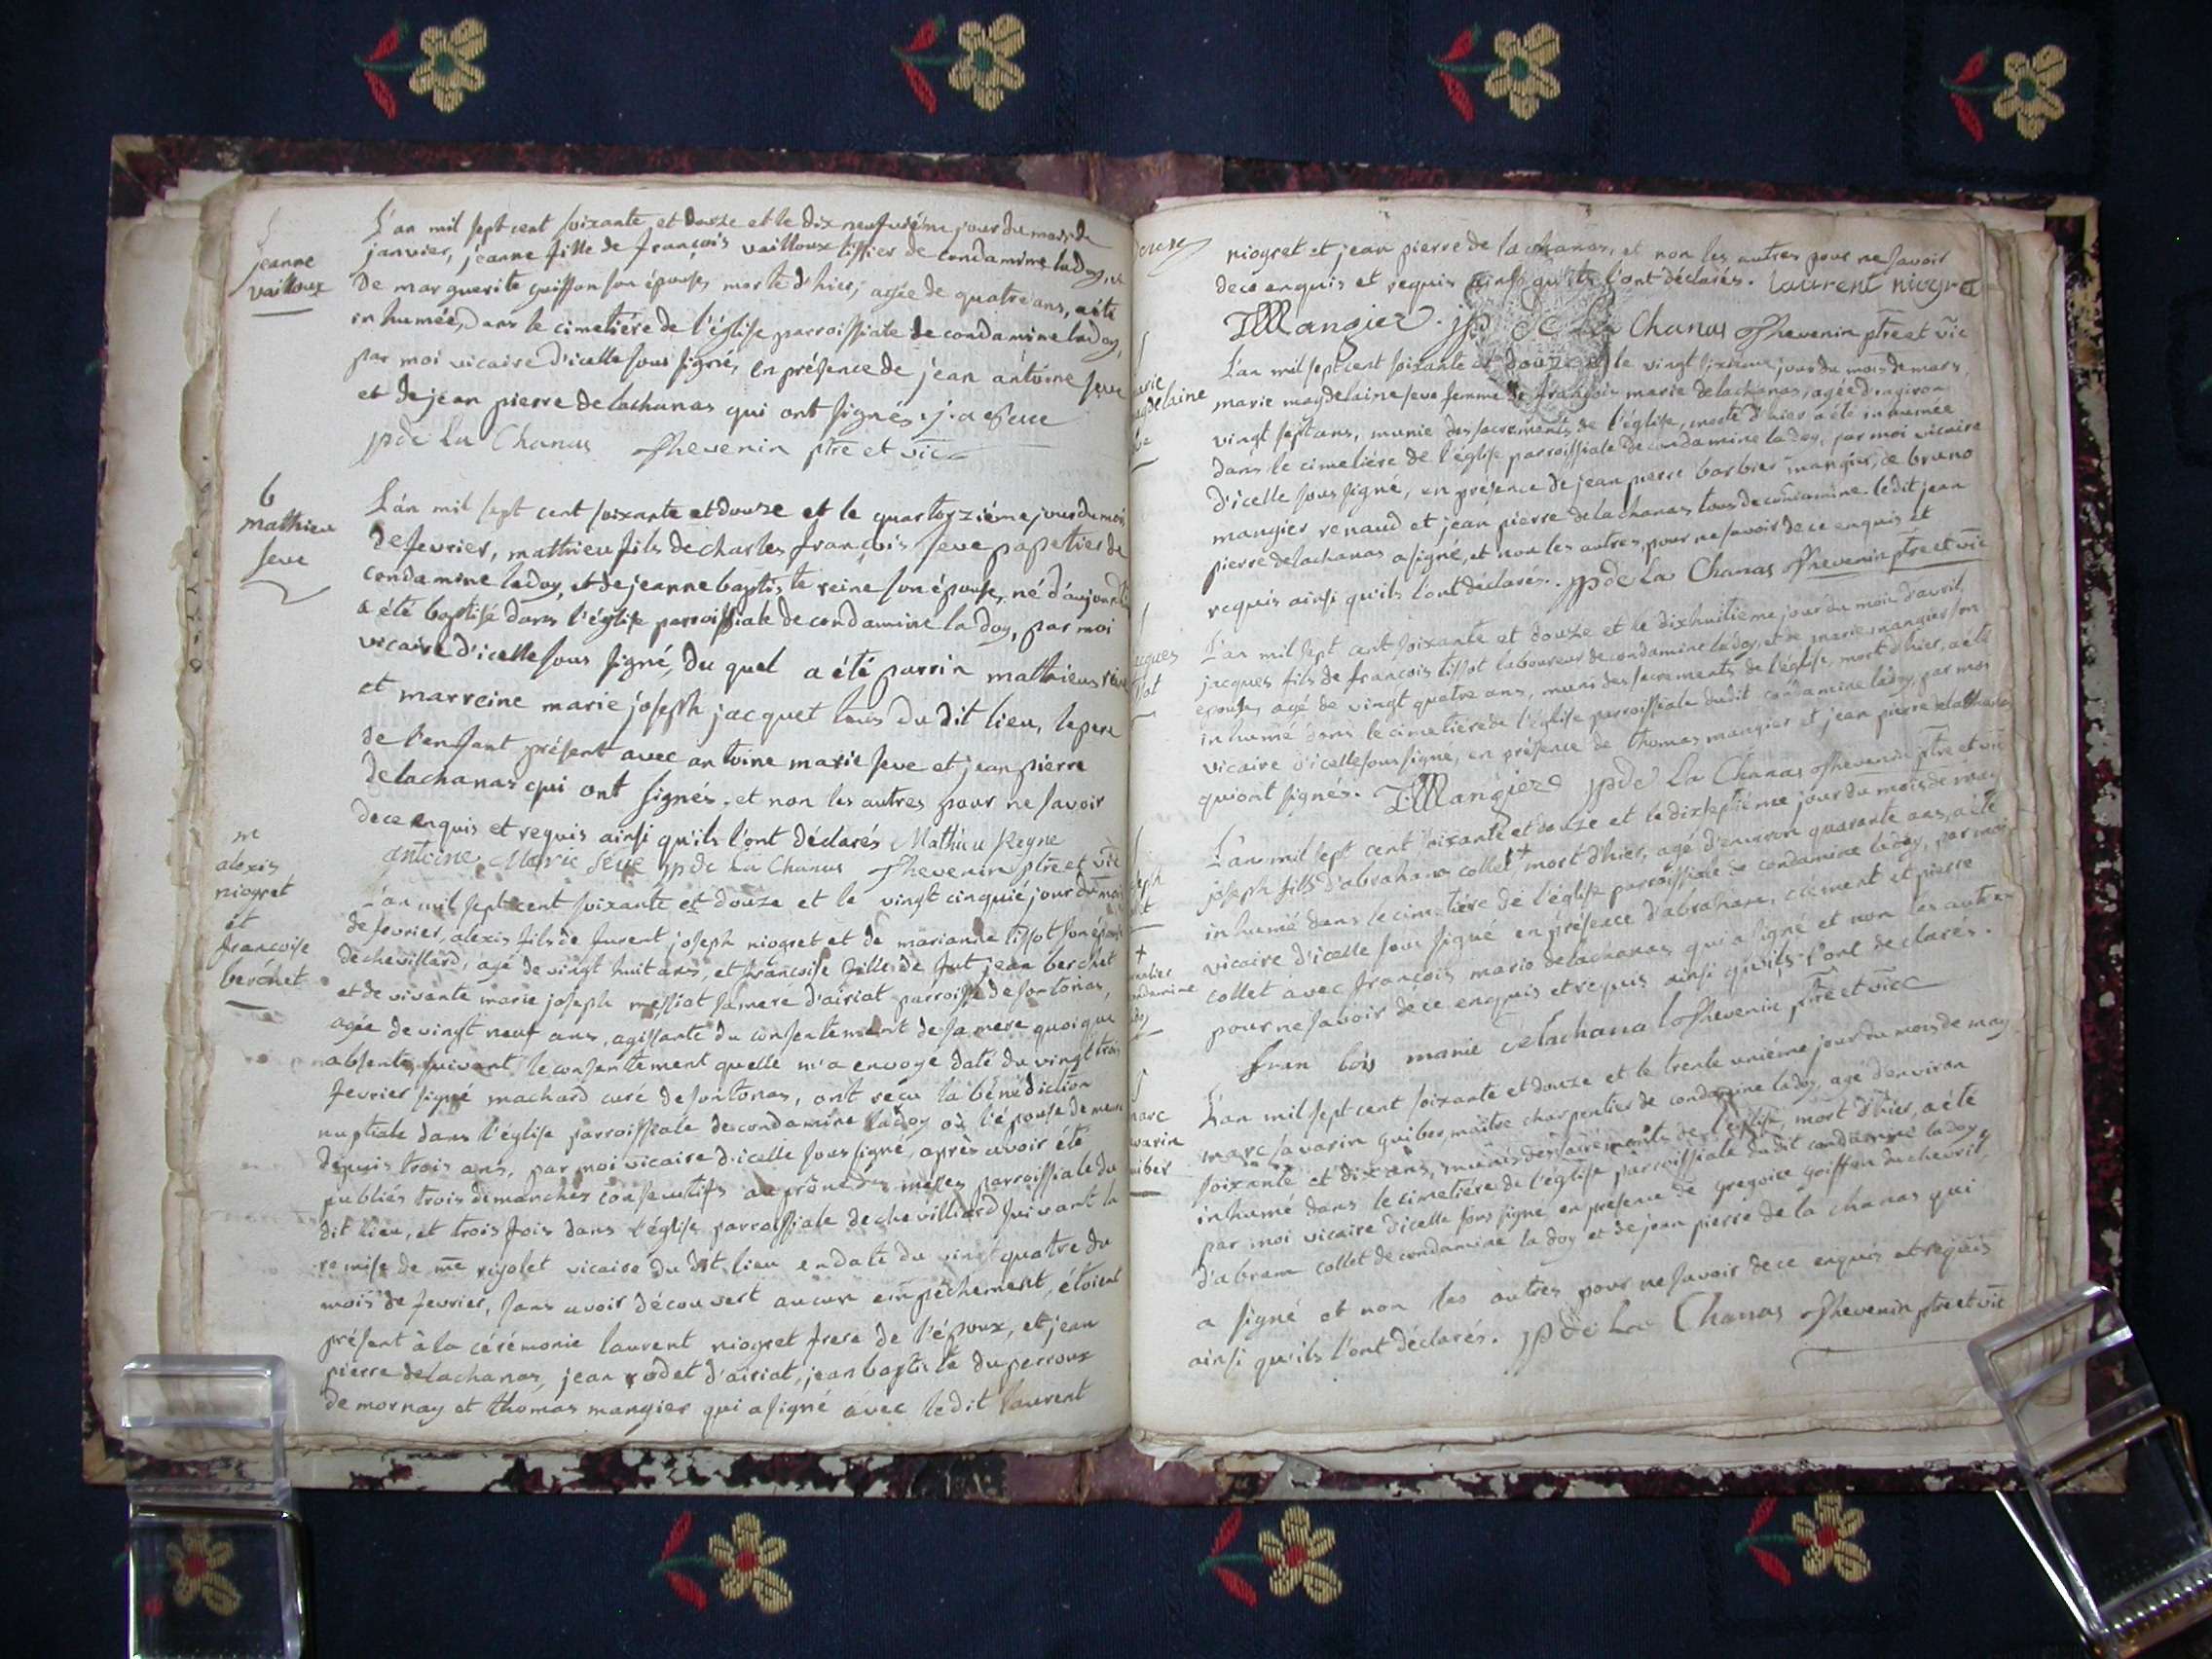 S
jeanne
vailloux
L'an mil sept cent soixante et douze et le dix neufvième jour du mois de
janvier, jeanne fille de françois vailloux tissier de condamine ladoy, et
de marguerite goiffon son épouse, morte d'hier, agée de quatre ans, a été
inhumée, dans le cimetiére de l'église parroissiale de condamine ladoy,
par moi vicaire d'icelle sous signé, en présence de jean antoine seve
et de jean pierre delachanas qui ont signés. j. a seve
jp de La Chanas Thevenin ptre et vic
b
mathieu
seve
L'an mil sept cent soixante et douze et le quatorziéme jour du mois
de fevrier, mathieu fils de charles françois seve papetier de
condamine ladoy, et de jeanne baptiste reine son épouse, né d'aujourd'
a été baptisé dans l'église parroissiale de condamine la doy, par moi
vicaire d'icelle sous signé, du quel a été parrin mathieu reine
et marreine marie joseph jacquet tous du dit lieu, le pere
de l'enfant présent avec antoine marie seve et jean pierre
delachanas qui ont signés. et non les autres pour ne savoir
de ce enquis et requis ainsi qu'ils l'ont déclarés Mathieu Reyne
antoine Marie Seve jp de La Chanas Thevenin ptre et vic
m
alexis
niogret
et
francoise
berchet
L'an mil sept cent soixante et douze et le vingt cinquié jour du mois
de fevrier, alexis fils de furent joseph niogret et de marianne tissot son épouse
de chevillard, agé de vingt huit ans, et françoise fille de fut jean berchet
et de vivante marie joseph messiat sa mere d'airiat parroisse de sontonas,
agée de vingt neuf ans, agissante du consentement de sa mere quoique
absente, suivant le consentement quelle m'a envoyé daté du vingt trois
fevrier signé machard curé de sontonas, ont reçu la bénédiction
nuptiale dans l'église parroissiale de condamine ladoy où l'épouse demeure
depuis trois ans, par moi vicaire d'icelle sous signé, après avoir été
publiés trois dimanches consecutifs au prône des messes parroissiale du
dit lieu, et trois fois dans l'église parroissiale de chevilliard suivant la
remise de me rigolet vicaire du dit lieu en date du vingt quatre du
mois de fevrier, sans avoir découvert aucun empêchement, étoient
présent à la cérémonie laurent niogret frere de l'époux, et jean
pierre delachanas, jean rodet d'airiat, jean baptiste duperroux
de mornay et thomas mangier qui a signé avec ledit laurent
niogret et jean pierre de lachanas, et non les autres pour ne savoir
de ce enquis et requis ainsi qu'ils l'ont déclarés. laurent niogret
TMangier. jp de La Chanas Thevenin ptre et vic
S
marie
magdelaine
seve
L'an mil sept cent soixante et douze et le vingt sixieme jour du mois de mars,
marie magdelaine seve femme de françois marie delachanas, agée d'environ
vingt sept ans, munie des sacrements de l'église, morte d'hier a été inhumée
dans le cimetiére de l'église parroissiale de condamine ladoy, par moi vicaire
d'icelle sous signé, en présence de jean pierre barbier mangier, de bruno
mangier renaud et jean pierre delachanas tous de condamine. ledit jean
pierre delachanas a signé, et non les autres pour ne savoir de ce enquis et
requis ainsi qu'ils l'ont déclarés. jp de La Chanas Thevenin ptre et vic
jacques
tissot
L'an mil sept cent soixante et douze et le dixhuitieme jour du mois d'avril,
jacques fils de françois tissot laboureur de condamine ladoy, et de marie mangier son
epouse, agé de vingt quatre ans, muni des sacrements de l'église, mort d'hier, a été
inhumé dans le cimetiére de l'église parroissiale dudit condamine ladoy, par moi
vicaire d'icelle sous signé, en présence de thomas mangier et jean pierre delachanas
qui ont signés. TMangier jp de La Chanas Thevenin ptre et vic
joseph
collet
L'an mil sept cent soixante et douze et le dixseptiéme jour du mois de may
joseph fils d'abraham collet + mort d'hier, agé d'environ quarante ans, a été
inhumé dans le cimetiére de l'église parroissiale de condamine ladoy, par moi
vicaire d'icelle sous signé en présence d'abraham, clément et pierre
collet avec françois marie delachanas qui a signé et non les autres
pour ne savoir de ce enquis et requis ainsi qu'ils l'ont declarés.
fran bois marie delachanal Thevenin ptre et vic
+
condamine
S
marc
savarin
guiber
L'an mil sept cent soixante et douze et le trente uniéme jour du mois de may
marc savarin guiber, maître charpentier de condamine ladoy, agé d'environ
soixante et dix ans, munis des sacrements de l'église, mort d'hier, a été
inhumé dans le cimetiére de l'église parroissiale du dit condamine ladoy,
par moi vicaire d'icelle sous signé en présence de gregoire goiffon du chevril,
d'abram collet de condamine la doy et de jean pierre de la chanas qui
a signé et non les autres pour ne savoir de ce enquis et requis
ainsi qu'ils l'ont déclarés. jp de La Chanas Thevenin ptre et vic